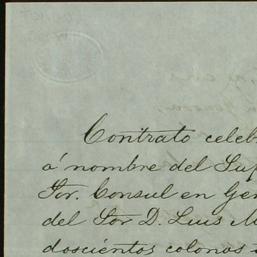 Contrato celeb
á nombre del Sup
Sor. Consul en Gen
del Sor D. Luis M
doscientos colonos